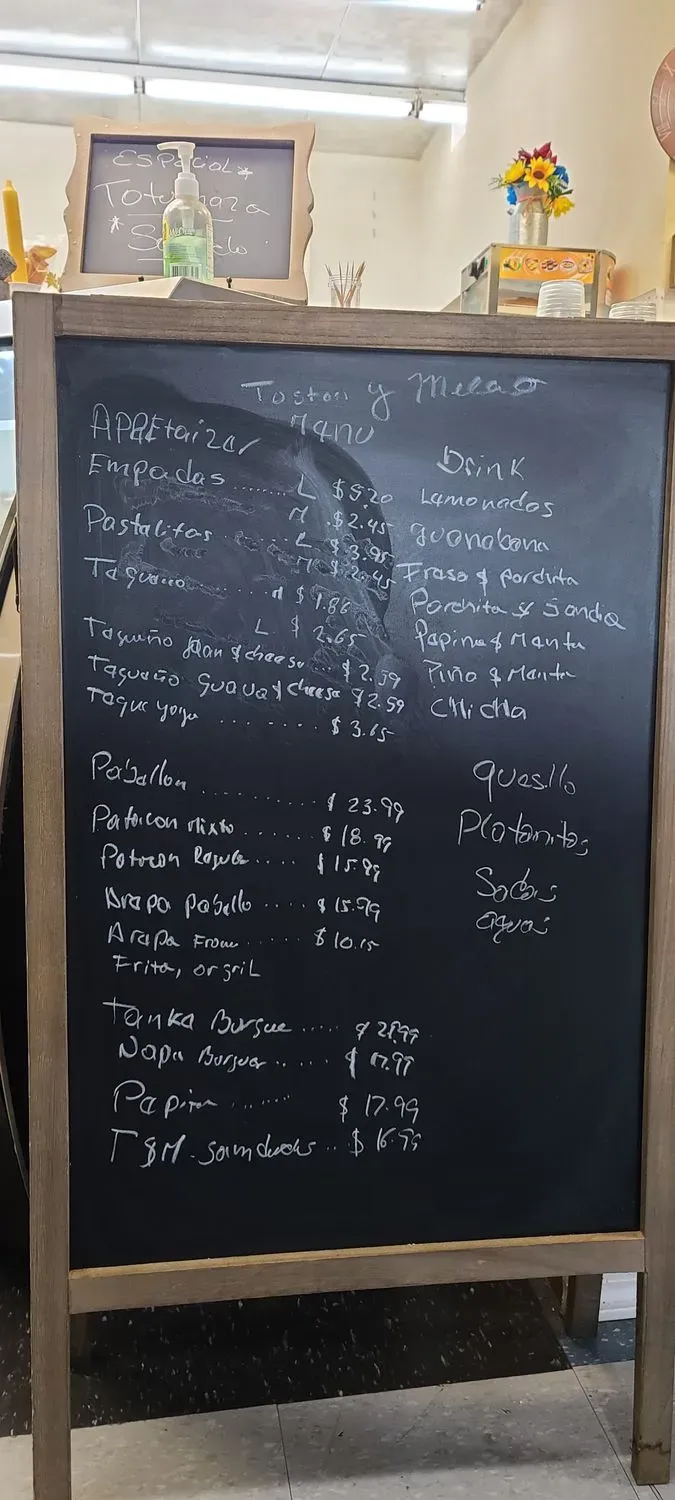 ESPecial*
*
Toston y Melao
Manu
APPEtaizer
Empadas ........ L $5.20
M .$2.45
Pastalitos ........ L $3.95
M $2.45
Taquaño ..... M $1.86
L $2.65
Taqueño Jaan & cheese ... $2.59
Taquaño Guava & cheese $2.59
Taque yoyo ........ $3.65
Paballon ............ $23.99
Patocon Mixto ....... $18.99
Patocon Regula .... $15.99
Arapa paballo .... $15.99
Arapa From ...... $10.15
Frita, or gril
Tanka Burgue .....
Napa Burguer ..... $17.99
Papita ....... $17.99
T&M. Samduchs .. $16.99
Drink
Lamonados
guanabana
Frasa & parchita
Parchita & Sandia
Papino & Manta
Piña & Manta
Chicha
quesillo
Platanitos
Sodas
aguas